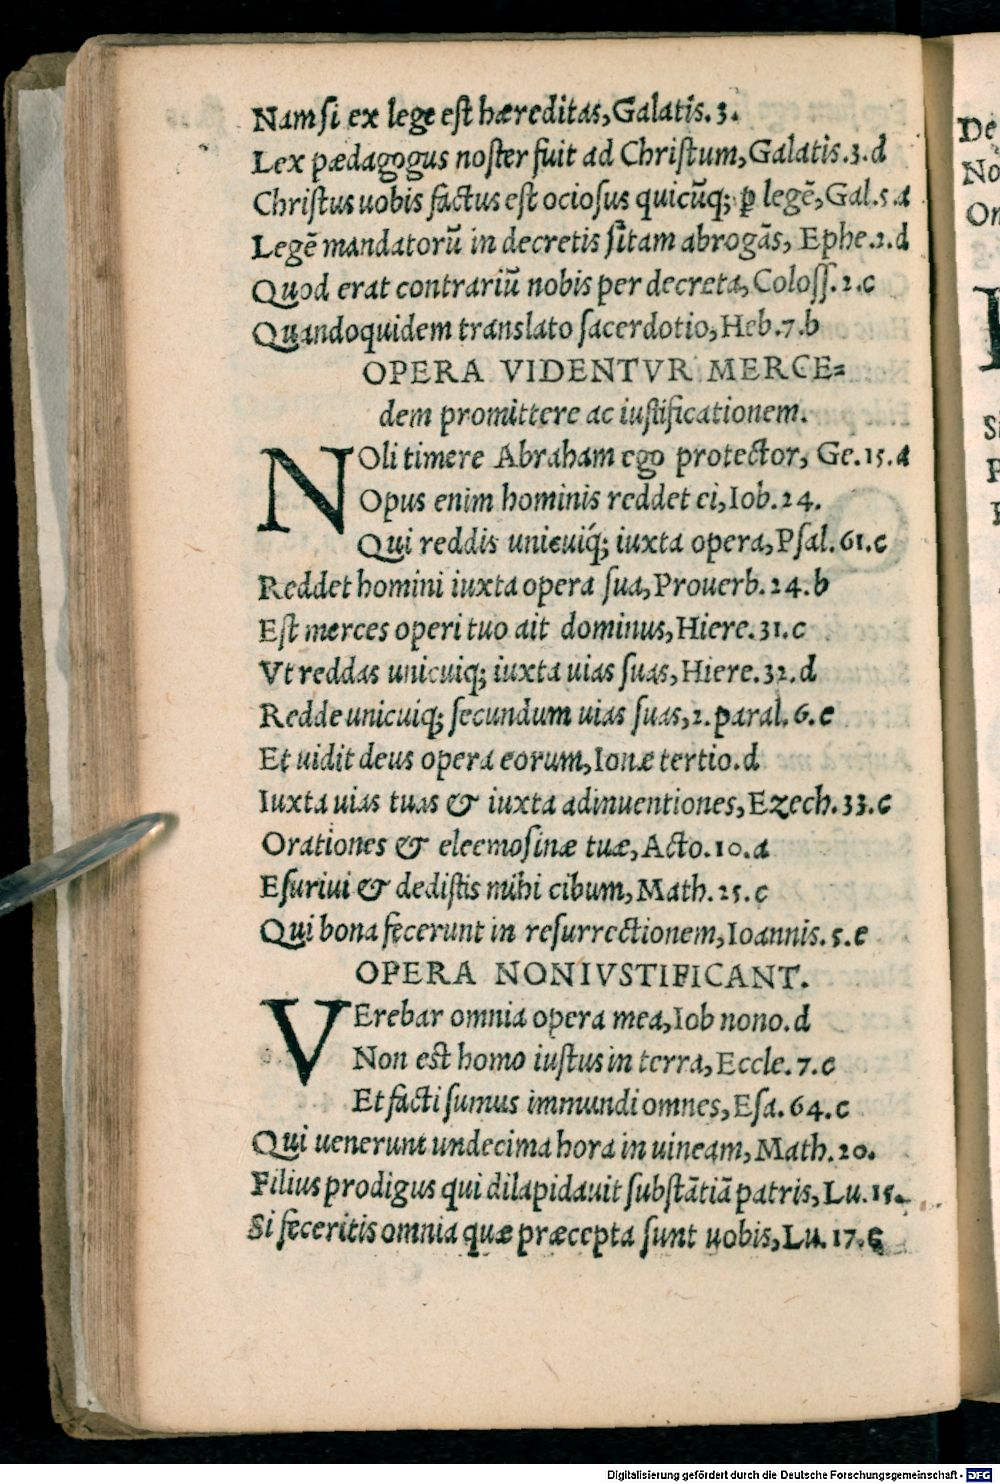 Nam si ex lege est hæreditas, Galatis. 3.
Lex pædagogus noster fuit ad Christum, Galatis. 3. d
Christus uobis factus est ociosus quicũq; ꝑ legẽ, Gal. 5. a
Legẽ mandatorũ in decretis sitam abrogãs, Ephe. 2. d
Quod erat contrariũ nobis per decreta, Coloss. 2. c
Quandoquidem translato sacerdotio, Heb. 7. b
OPERA VIDENTVR MERCE=
dem promittere ac iustificationem.
NOli timere Abraham ego protector, Ge. 15. a
Opus enim hominis reddet ei, Iob. 24.
Qui reddis unicuíq; iuxta opera, Psal. 61. c
Reddet homini iuxta opera sua, Prouerb. 24. b
Est merces operi tuo ait dominus, Hiere. 31. c
Vt reddas unicuiq; iuxta uias suas, Hiere. 32. d
Redde unicuiq; secundum uias suas, 2. paral. 6. e
Et uidit deus opera eorum, Ionæ tertio. d
Iuxta uias tuas & iuxta adinuentiones, Ezech. 33. c
Orationes & eleemosinæ tuæ, Acto. 10. a
Esuriui & dedistis mihi cibum, Math. 25. c
Qui bona fecerunt in resurrectionem, Ioannis. 5. e
OPERA NON IVSTIFICANT.
VErebar omnia opera mea, Iob nono. d
Non est homo iustus in terra, Eccle. 7. c
Et facti sumus immundi omnes, Esa. 64. c
Qui uenerunt undecima hora in uineam, Math. 20.
Filius prodigus qui dilapidauit substãtiã patris, Lu. 15.
Si feceritis omnia quæ præcepta sunt uobis, Lu. 17. c
De
No
Digitalisierung gefördert durch die Deutsche Forschungsgemeinschaft - DFG